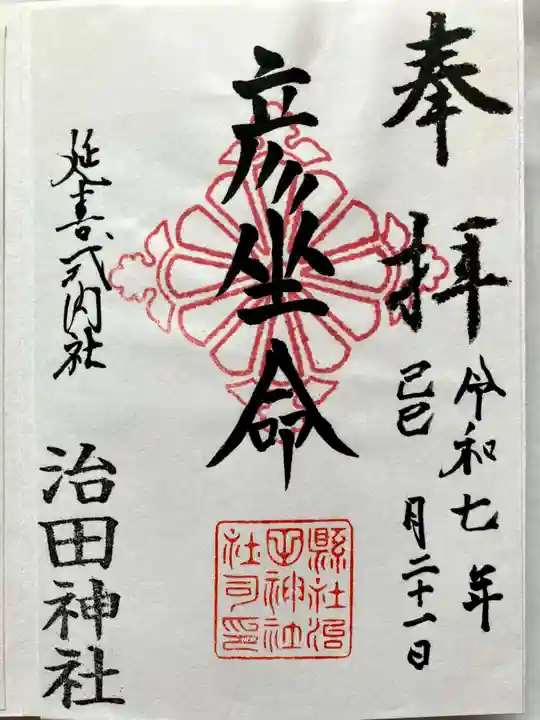 奉拝
令和七年
己巳 月二十一日
彦坐命
縣社治
田神社
社司印
延喜式内社
治田神社